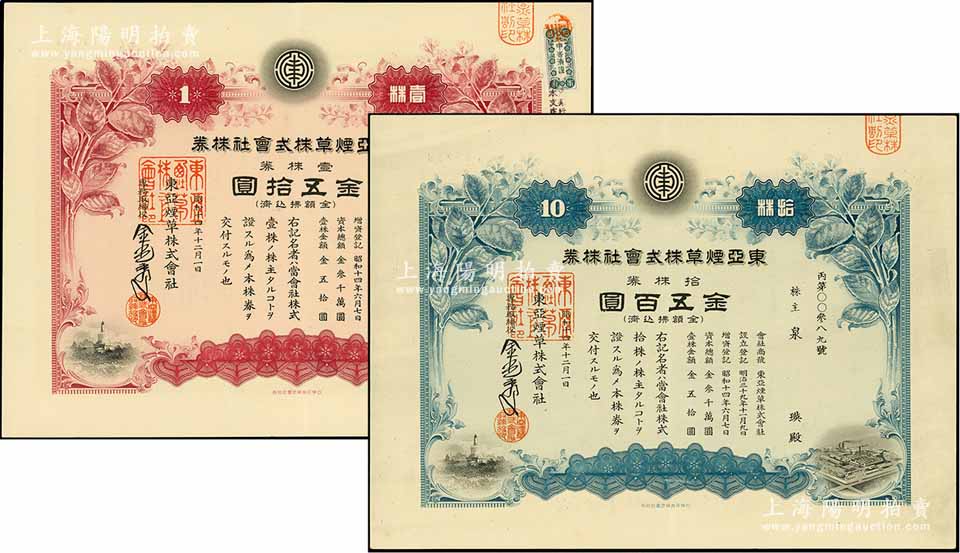 上海陽明拍賣
www.yangmingauction.com
1
壹株
東
亞煙草株式會社株券
壹株券
金五拾圓
(全額拂込濟)
增資登記 昭和十四年六月七日
資本總額 金參千萬圓
壹株金額 金五拾圓
右記名者ハ當會社株式
壹株ノ株主タルコトヲ
證スル爲メ本株券ヲ
交付スルモノ也
十二月一日
東亞煙草株式會社
10
拾株
東
東亞煙草株式會社株券
拾株券
金五百圓
(全額拂込濟)
丙第〇〇參八九號
株主 泉 瑛殿
會社商號 東亞煙草株式會社
設立登記 明治三十九年十一月九日
增資登記 昭和十四年六月七日
資本總額 金參千萬圓
壹株金額 金五拾圓
右記名者ハ當會社株式
拾株ノ株主タルコトヲ
證スル爲メ本株券ヲ
交付スルモノ也
十二月一日
東亞煙草株式會社
上海陽明拍賣
www.yangmingauction.com
上海陽明拍賣
www.yangmingauction.com